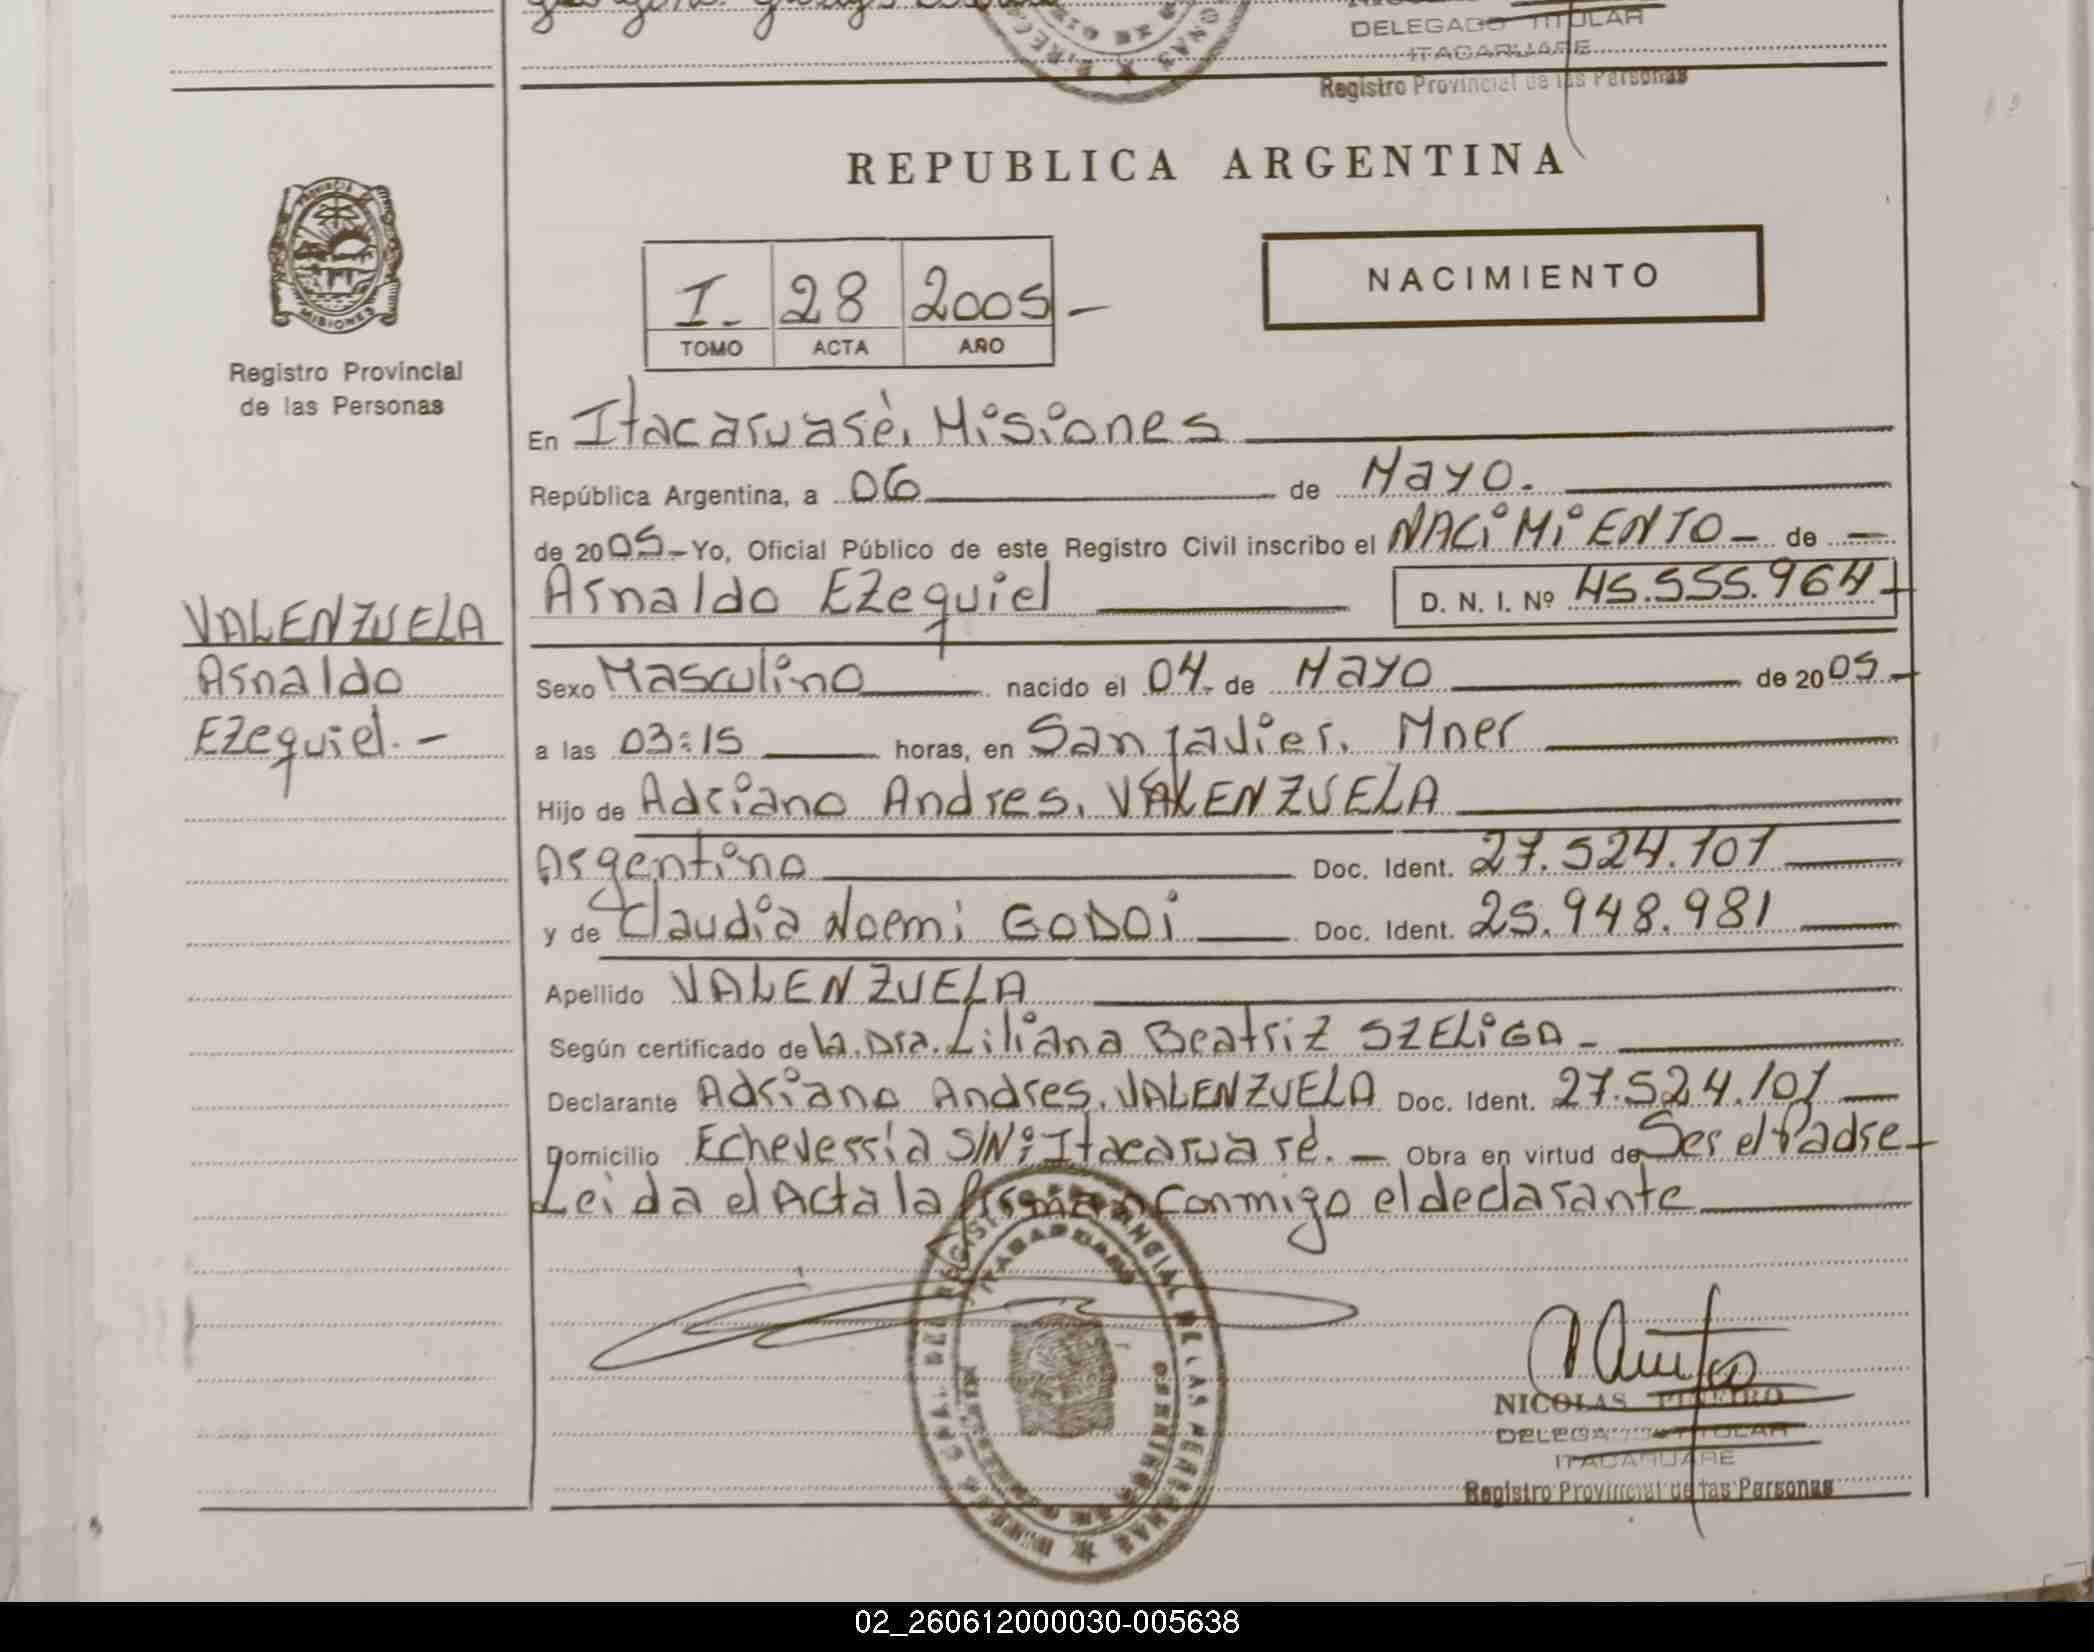 DELEGADO TITULAR
ITACARUARE
Registro Provincial de las Personas
REPUBLICA ARGENTINA
NACIMIENTO
I. 28 2005-
TOMO ACTA AÑO
PROVINCIA DE
MISIONES
Registro Provincial
de las Personas
VALENZUELA
Arnaldo
Ezequiel.-
En Itacaruaré, Misiones
República Argentina, a 06 de Mayo.
de 2005- Yo, Oficial Público de este Registro Civil inscribo el NACIMIENTO- de -
Arnaldo Ezequiel D. N. I. Nº 45.555.964-
Sexo Masculino nacido el 04. de Mayo de 2005-
a las 03:15 horas, en San Javier. Mner
Hijo de Adriano Andres. VALENZUELA
Argentino Doc. Ident. 27.524.101
y de Claudia Noemi GODOi Doc. Ident. 25.948.981
Apellido VALENZUELA
Según certificado de la. Dra. Liliana Beatriz SZELIGA-
Declarante Adriano Andres. VALENZUELA Doc. Ident. 27.524.101
Domicilio Echeverría S/N: Itacaruaré. - Obra en virtud de Ser el Padre-
Leida el Acta la firman Conmigo el declarante
NICOLAS PIÑEIRO
DELEGADO TITULAR
ITACARUARE
Registro Provincial de las Personas
02_260612000030-005638